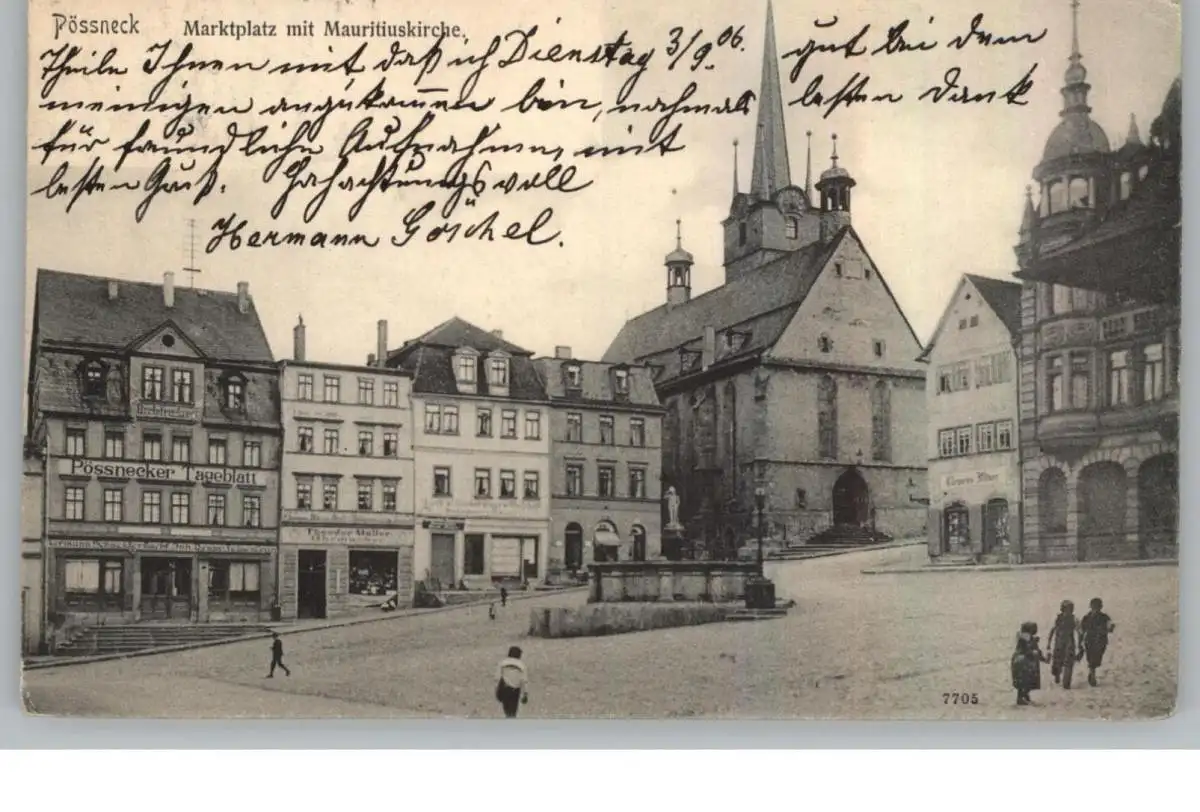 Pössneck Marktplatz mit Mauritiuskirche.
Theile Ihnen mit daß ich Dienstag 3/9.06. gut bei dem
meinigen angekommen bin, nochmals besten Dank
für freundliche Aufnahme, mit
besten Gruß. Hochachtungsvoll
Hermann Göschel.
Pössnecker Tageblatt
Theodor Müller
Uhrmacher
7705